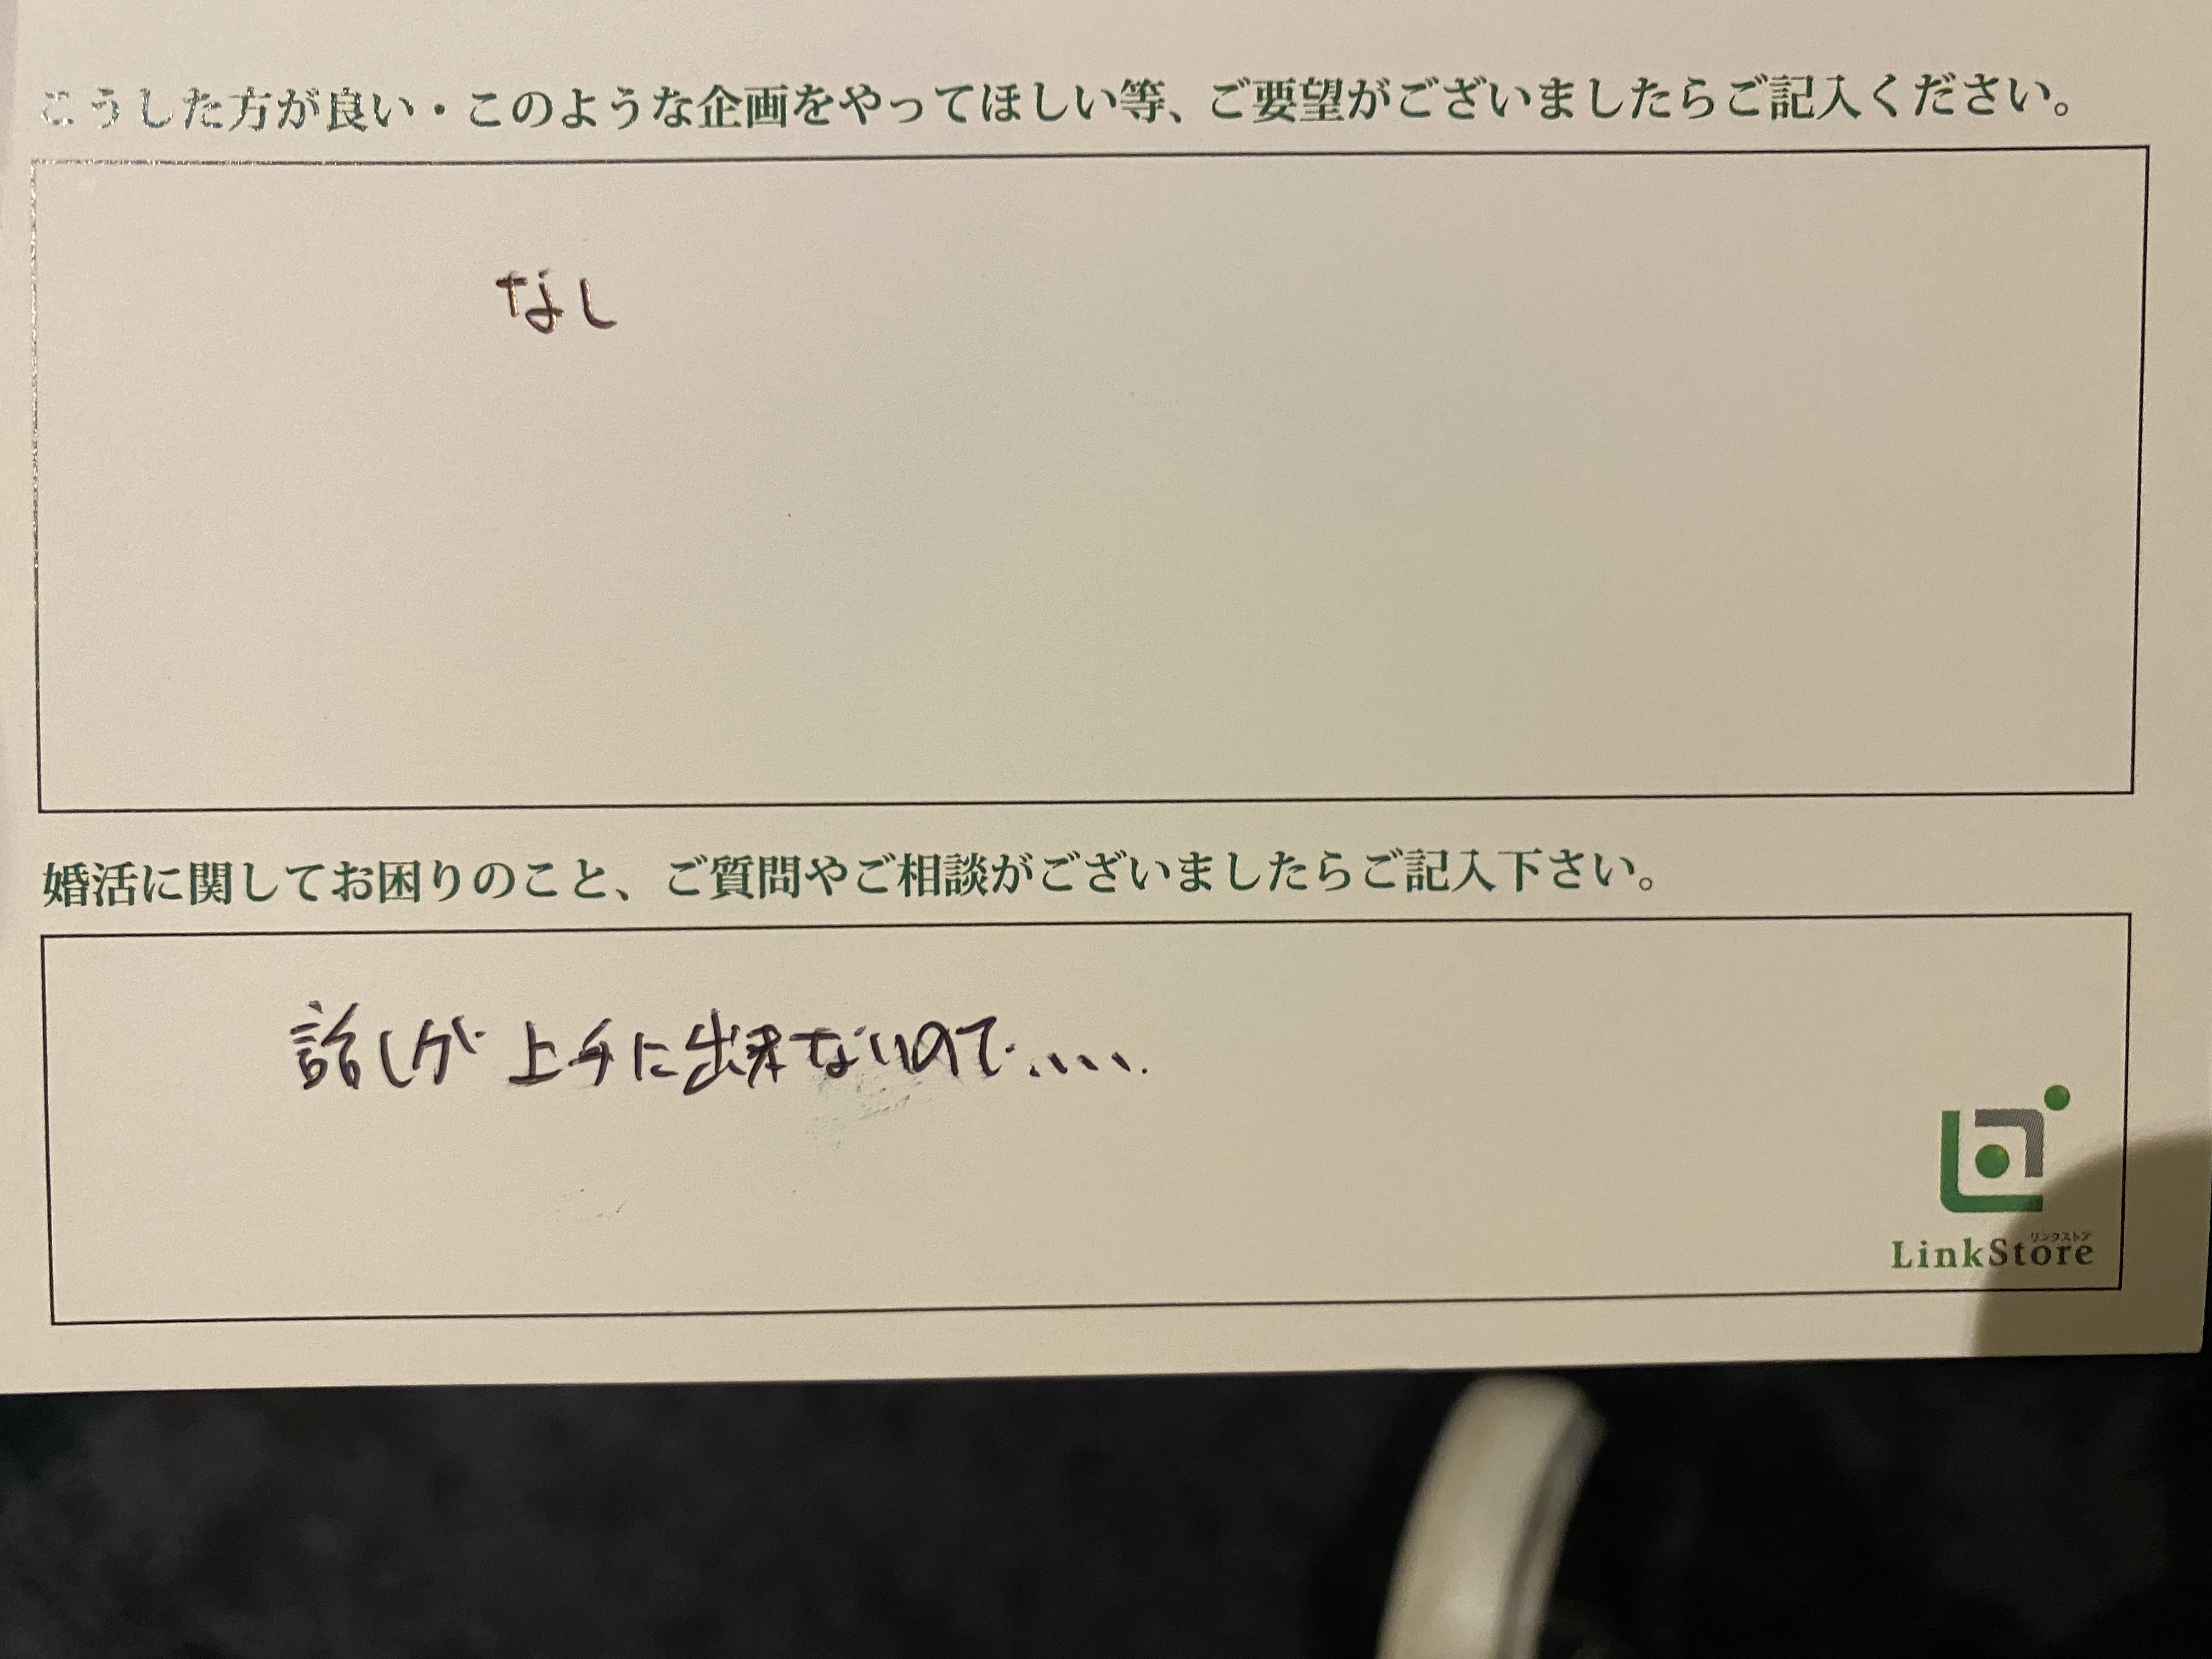 こうした方が良い・このような企画をやってほしい等、ご要望がございましたらご記入ください。
なし
婚活に関してお困りのこと、ご質問やご相談がございましたらご記入下さい。
話しが上手に出来ないので、、、、.
リンクストア
LinkStore